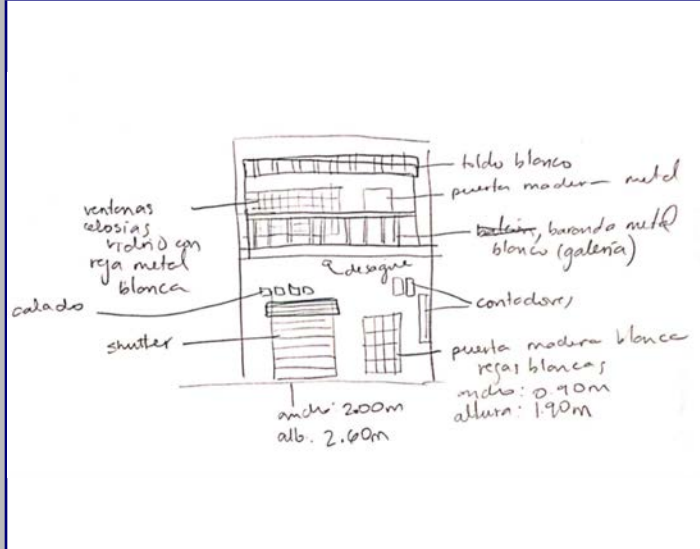 toldo blanco
puerta madera metal
ventanas
celosías
vidrio con
reja metal
blanca
balcón, baranda metal
blanco (galería)
desague
calado
contadores
shutter
puerta madera blanca
rejas blancas
ancho: 0.90m
altura: 1.90m
ancho: 2.00m
alt. 2.60m